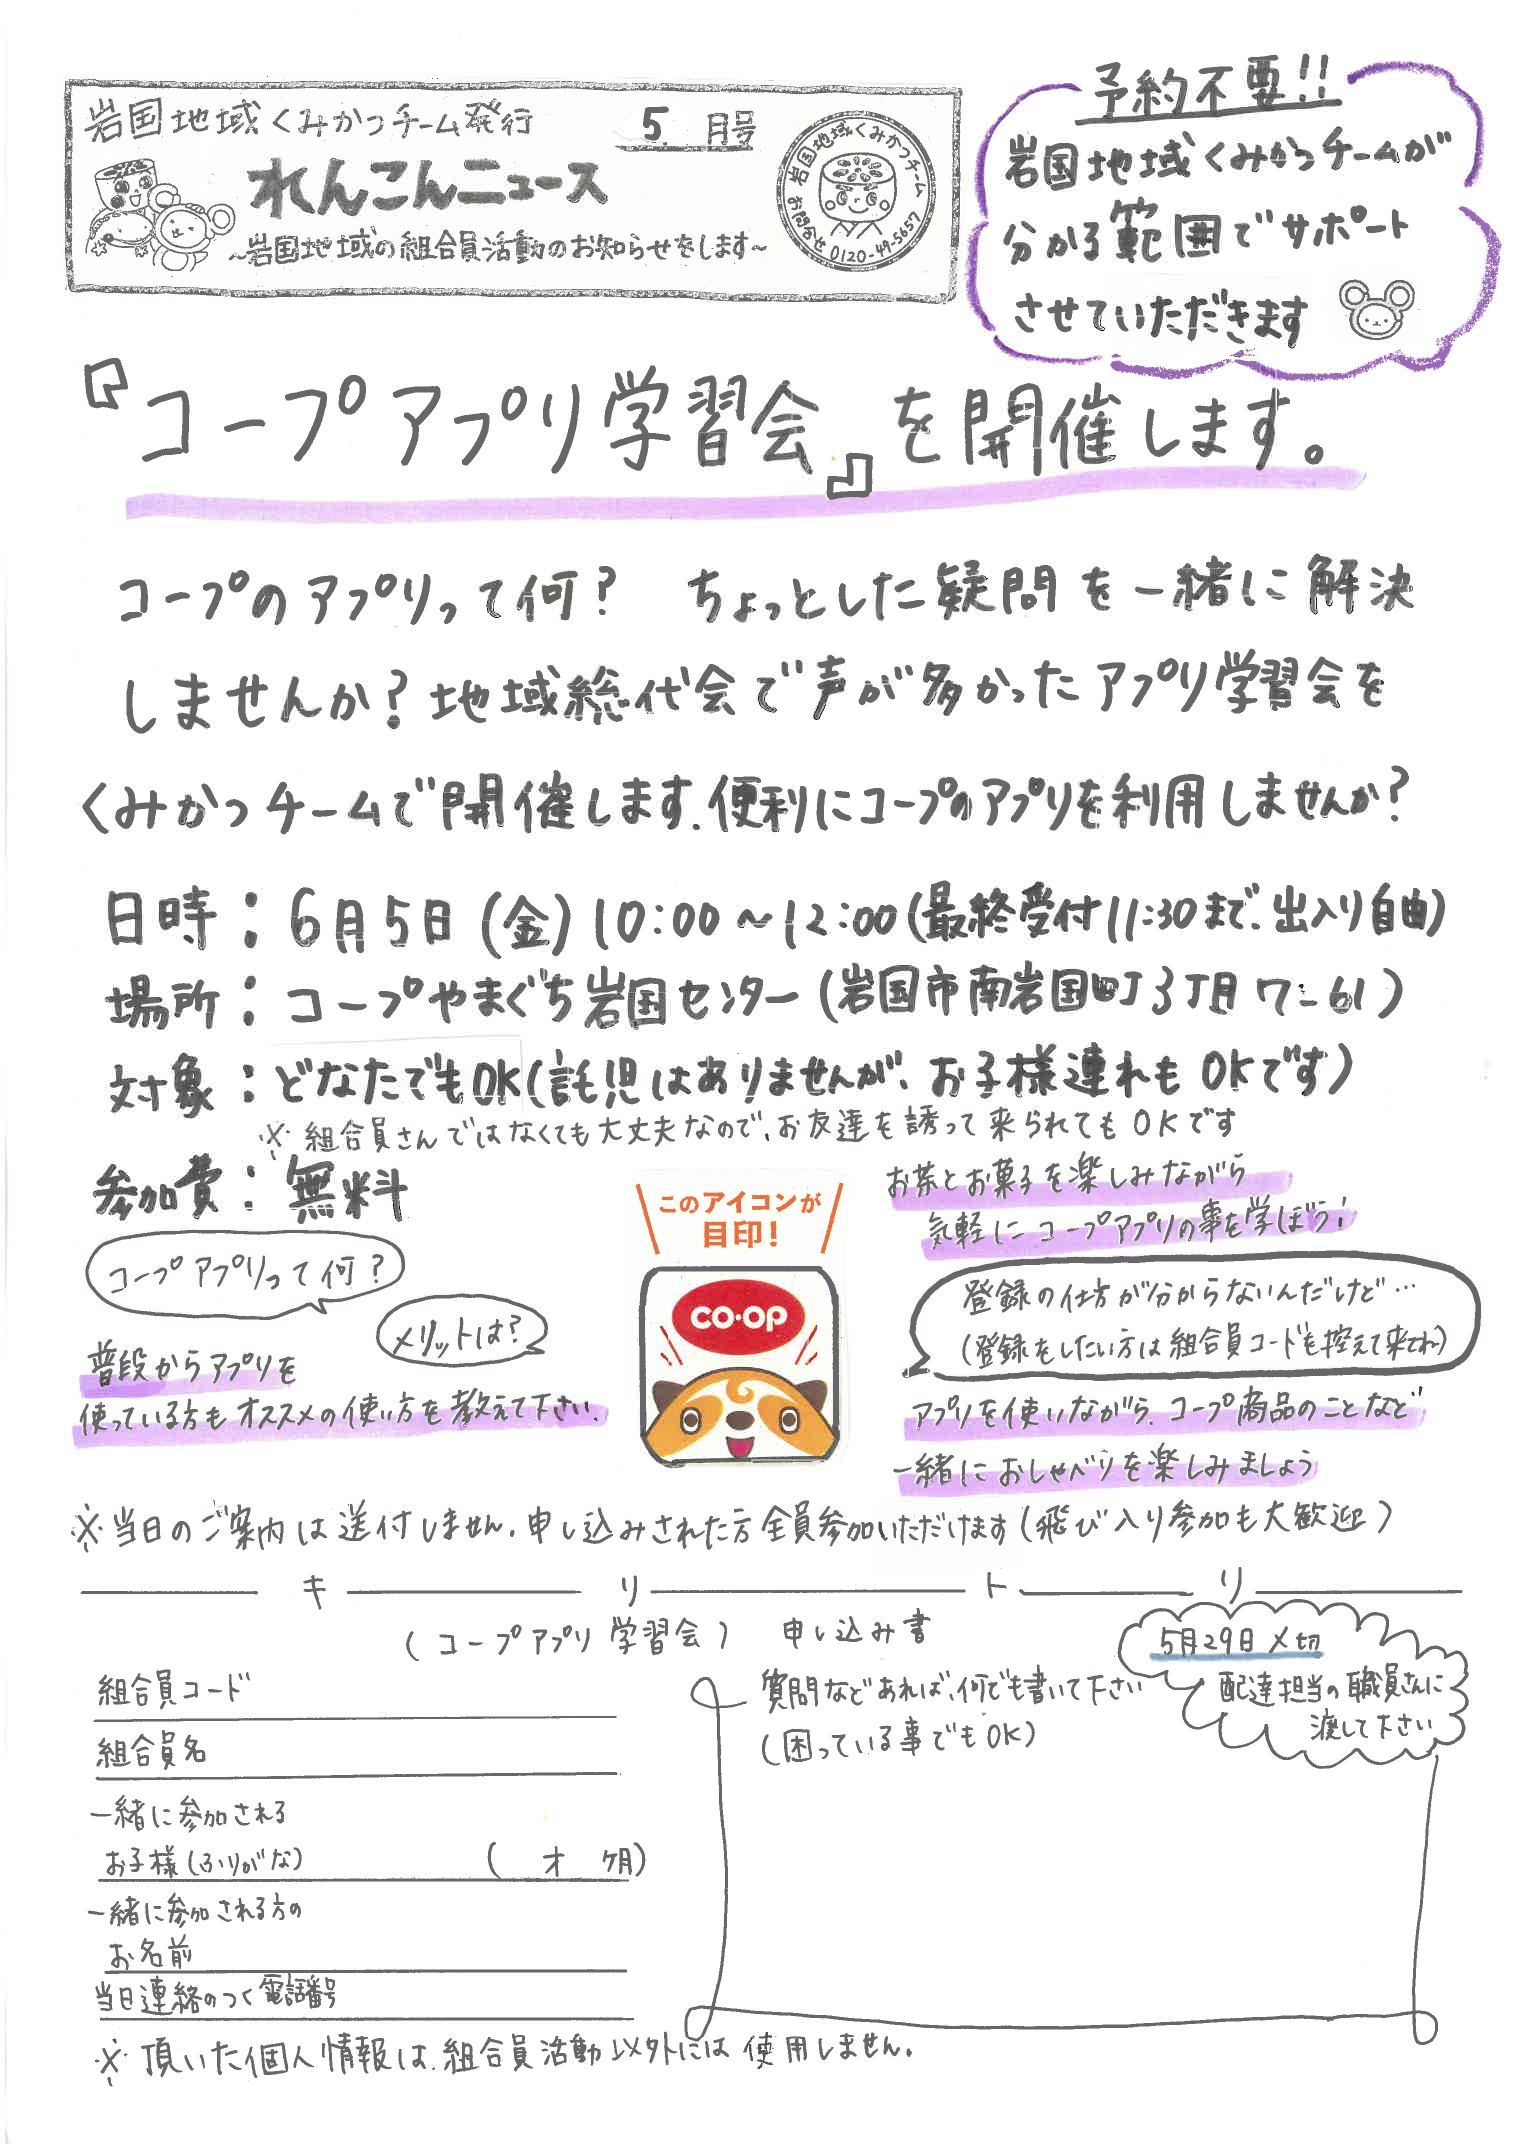 岩国地域くみかつチーム発行 5月号
れんこんニュース
~岩国地域の組合員活動のお知らせをします~
岩国地域くみかつチーム
お問合せ 0120-49-5657
予約不要!!
岩国地域くみかつチームが
分かる範囲でサポート
させていただきます
『コープアプリ学習会』を開催します。
コープのアプリって何? ちょっとした疑問を一緒に解決
しませんか?地域総代会で声が多かったアプリ学習会を
くみかつチームで開催します.便利にコープのアプリを利用しませんか?
日時:6月5日(金)10:00~12:00(最終受付11:30まで、出入り自由)
場所:コープやまぐち岩国センター(岩国市南岩国町3丁目7-61)
対象:どなたでもOK(託児はありませんが、お子様連れもOKです)
※組合員さんではなくても大丈夫なので、お友達を誘って来られてもOKです
参加費:無料
コープアプリって何?
メリットは?
普段からアプリを
使っている方もオススメの使い方を教えて下さい.
このアイコンが
目印!
CO・OP
お茶とお菓子を楽しみながら
気軽にコープアプリの事を学ぼう!
登録の仕方が分からないんだけど…
(登録をしたい方は組合員コードを控えて来てね)
アプリを使いながら、コープ商品のことなど
一緒におしゃべりを楽しみましょう
※当日のご案内は送付しません.申し込みされた方全員参加いただけます(飛び入り参加も大歓迎)
キリトリ
(コープアプリ学習会) 申し込み書
5月29日〆切
配達担当の職員さんに
渡して下さい
組合員コード
組合員名
一緒に参加される
お子様(ふりがな) ( 才 ヶ月)
一緒に参加される方の
お名前
当日連絡のつく電話番号
質問などあれば、何でも書いて下さい
(困っている事でもOK)
※頂いた個人情報は、組合員活動以外には使用しません.